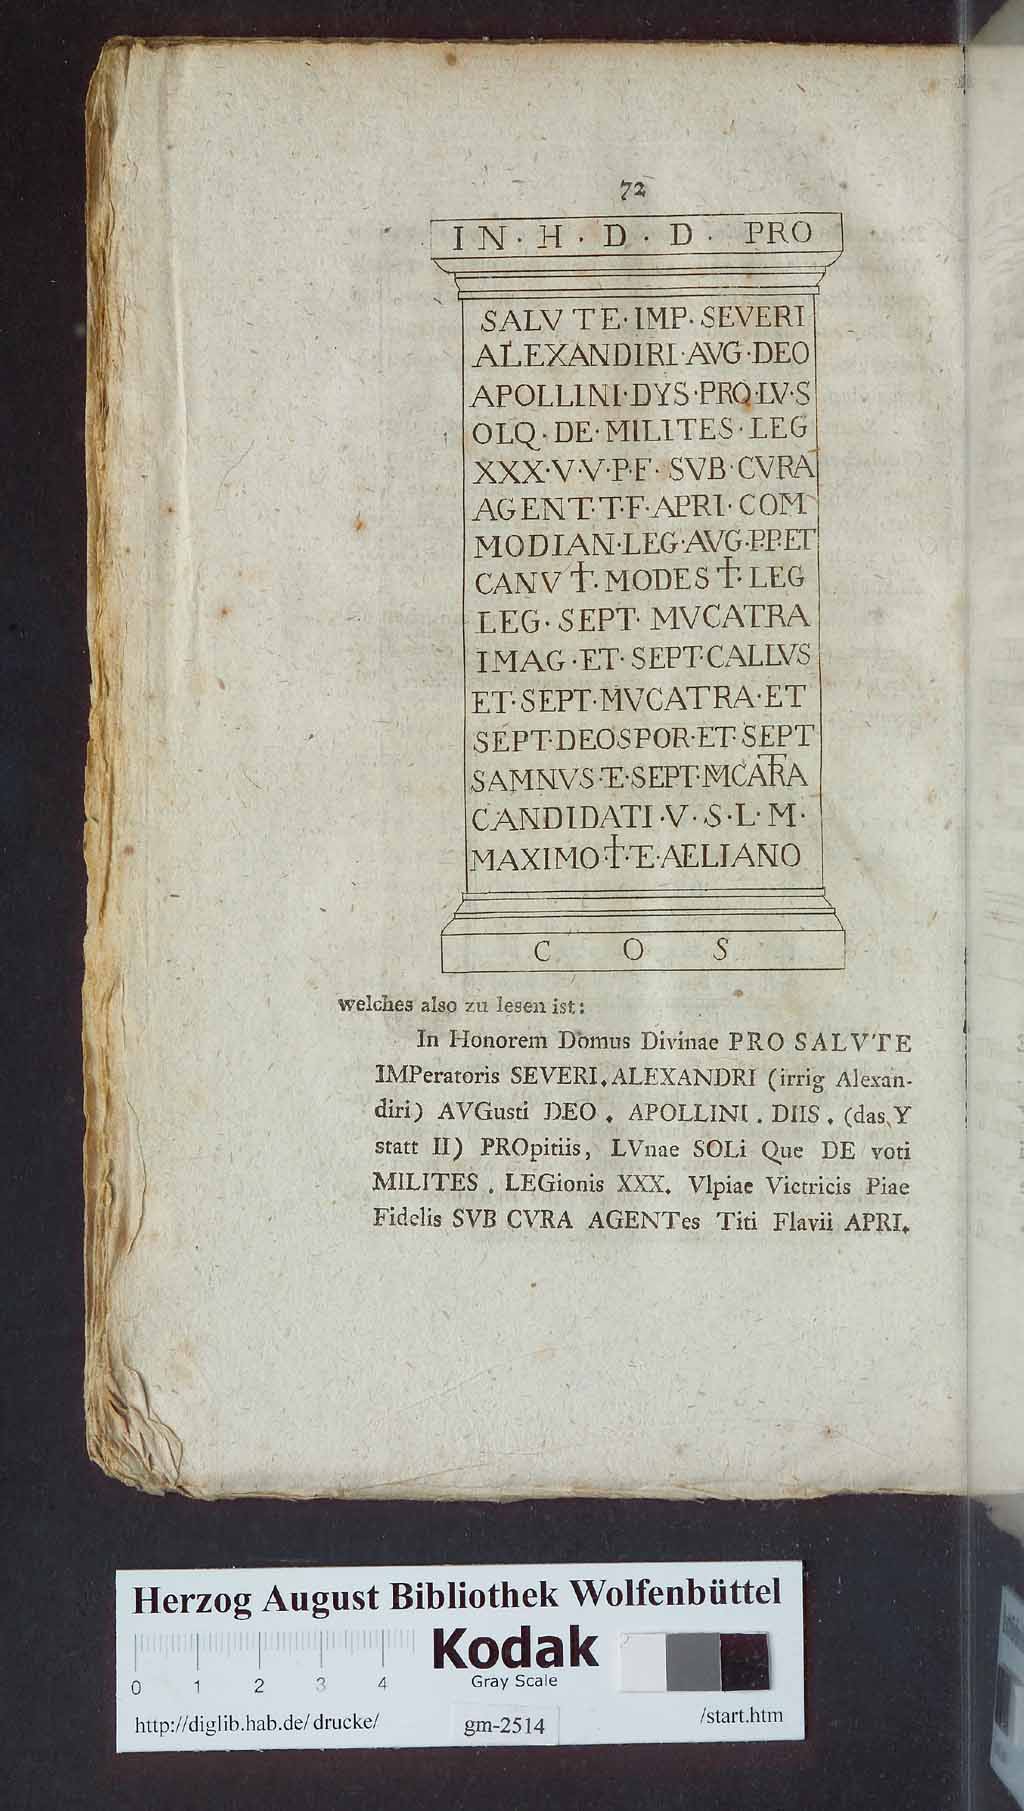 72
IN · H · D · D · PRO
SALVTE · IMP · SEVERI
ALEXANDIRI · AVG · DEO
APOLLINI · DYS · PRO · LV · S
OLQ · DE · MILITES · LEG
XXX · V · V · P · F · SVB · CVRA
AGENT · T · F · APRI · COM
MODIAN · LEG · AVG · P.P. ET
CANV †. MODES † · LEG
LEG · SEPT · MVCATRA
IMAG · ET · SEPT · CALLVS
ET · SEPT · MVCATRA · ET
SEPT · DEOSPOR · ET · SEPT
SAMNVS · E · SEPT · MVCATRA
CANDIDATI · V · S · L · M ·
MAXIMO · † · E · AELIANO
C O S
welches also zu lesen ist:
In Honorem Domus Divinae PRO SALVTE
IMPeratoris SEVERI. ALEXANDRI (irrig Alexan-
diri) AVGusti DEO . APOLLINI . DIIS . (das Y
statt II) PROpitiis, LVnae SOLi Que DE voti
MILITES . LEGionis XXX. Vlpiae Victricis Piae
Fidelis SVB CVRA AGENTes Titi Flavii APRI.
Herzog August Bibliothek Wolfenbüttel
Kodak
Gray Scale
0 1 2 3 4
http://diglib.hab.de/drucke/ gm-2514 /start.htm